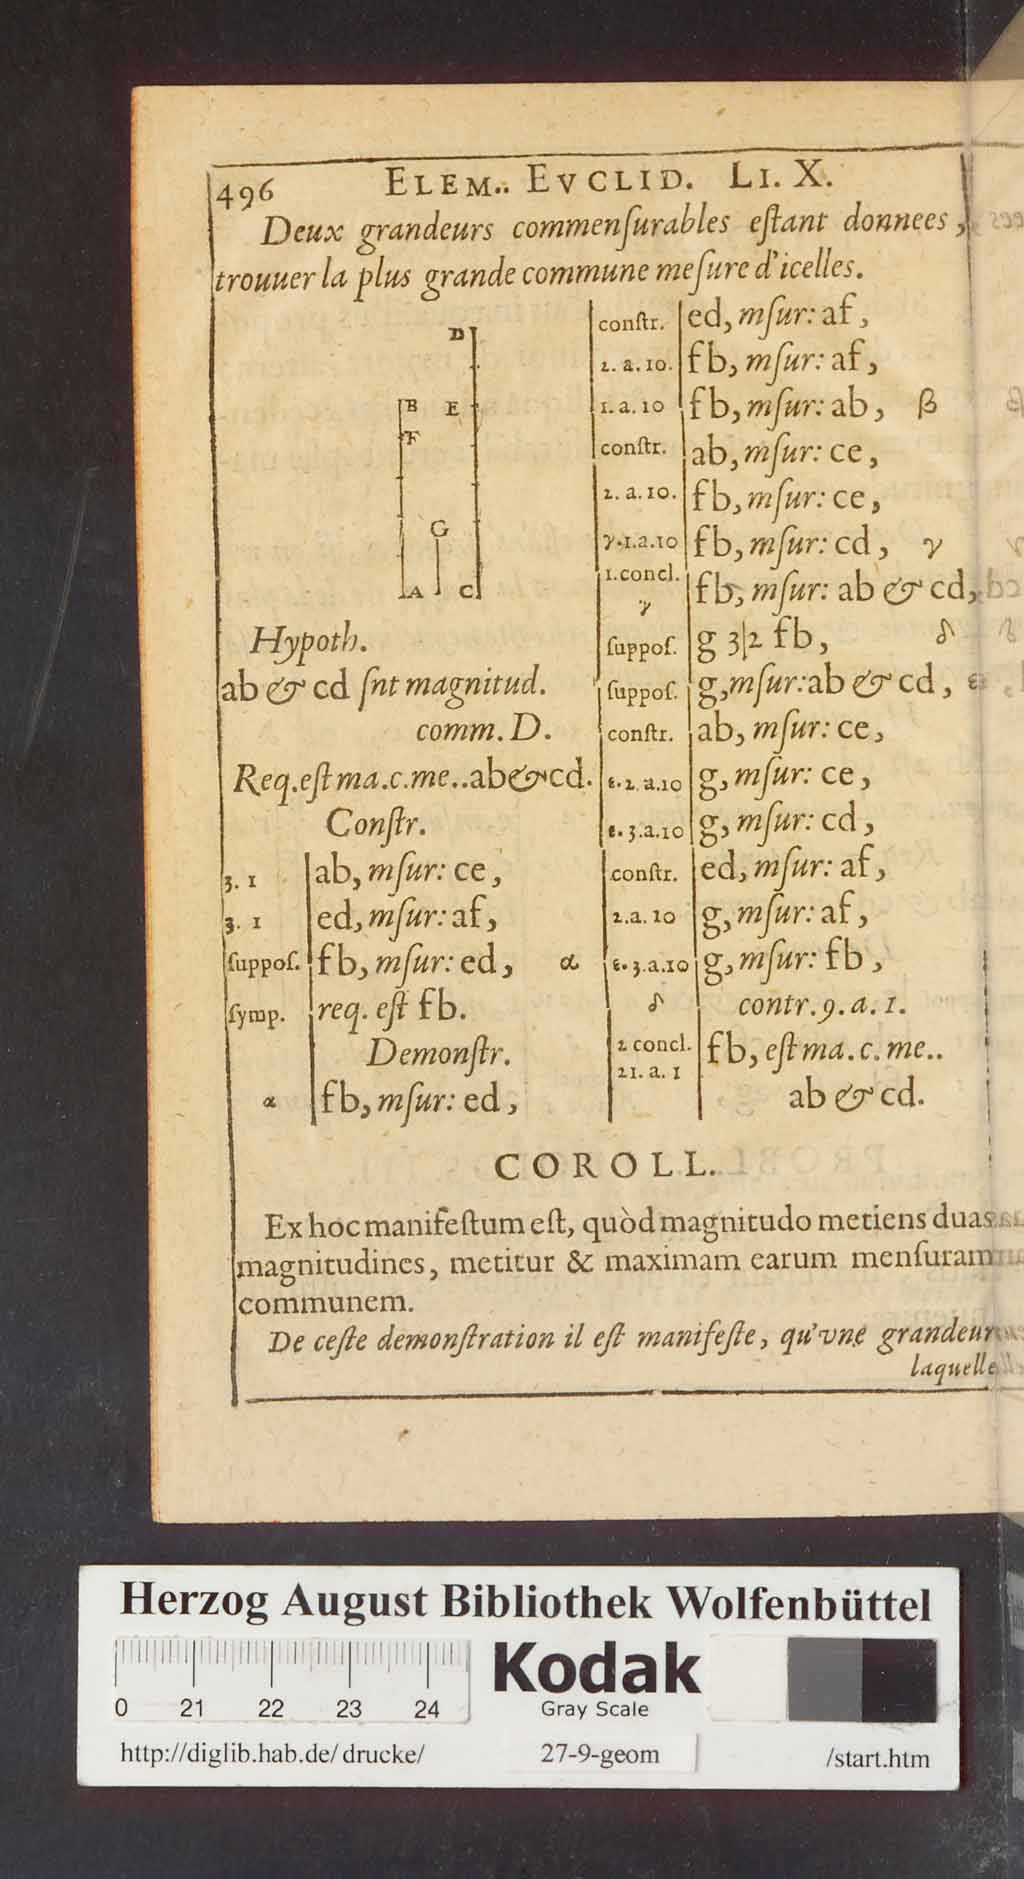 496 ELEM.. EVCLID. LI. X.
Deux grandeurs commenſurables eſtant donnees,
trouuer la plus grande commune meſure d'icelles.
D
B E
F
G
A C
Hypoth.
ab & cd ſnt magnitud.
comm. D.
Req. eſt ma. c. me.. ab & cd.
Conſtr.
3. 1 ab, mſur: ce,
3. 1 ed, mſur: af,
ſuppoſ. fb, mſur: ed, α
ſymp. req. eſt fb.
Demonſtr.
α fb, mſur: ed,
conſtr. ed, mſur: af,
2. a. 10. fb, mſur: af,
1. a. 10 fb, mſur: ab, β
conſtr. ab, mſur: ce,
2. a. 10. fb, mſur: ce,
γ. 1. a. 10 fb, mſur: cd, γ
1. concl. fb, mſur: ab & cd,
γ
ſuppoſ. g 3|2 fb, δ
ſuppoſ. g, mſur: ab & cd, ε
conſtr. ab, mſur: ce,
ε. 2. a. 10 g, mſur: ce,
ε. 3. a. 10 g, mſur: cd,
conſtr. ed, mſur: af,
2. a. 10 g, mſur: af,
ε. 3. a. 10 g, mſur: fb,
δ contr. 9. a. 1.
2 concl. fb, eſt ma. c. me..
21. a. 1
ab & cd.
COROLL.
Ex hoc manifeſtum eſt, quòd magnitudo metiens duas
magnitudines, metitur & maximam earum menſuram
communem.
De ceſte demonſtration il eſt manifeſte, qu'vne grandeur
laquelle
Herzog August Bibliothek Wolfenbüttel
0 21 22 23 24
Kodak
Gray Scale
http://diglib.hab.de/drucke/ 27-9-geom /start.htm